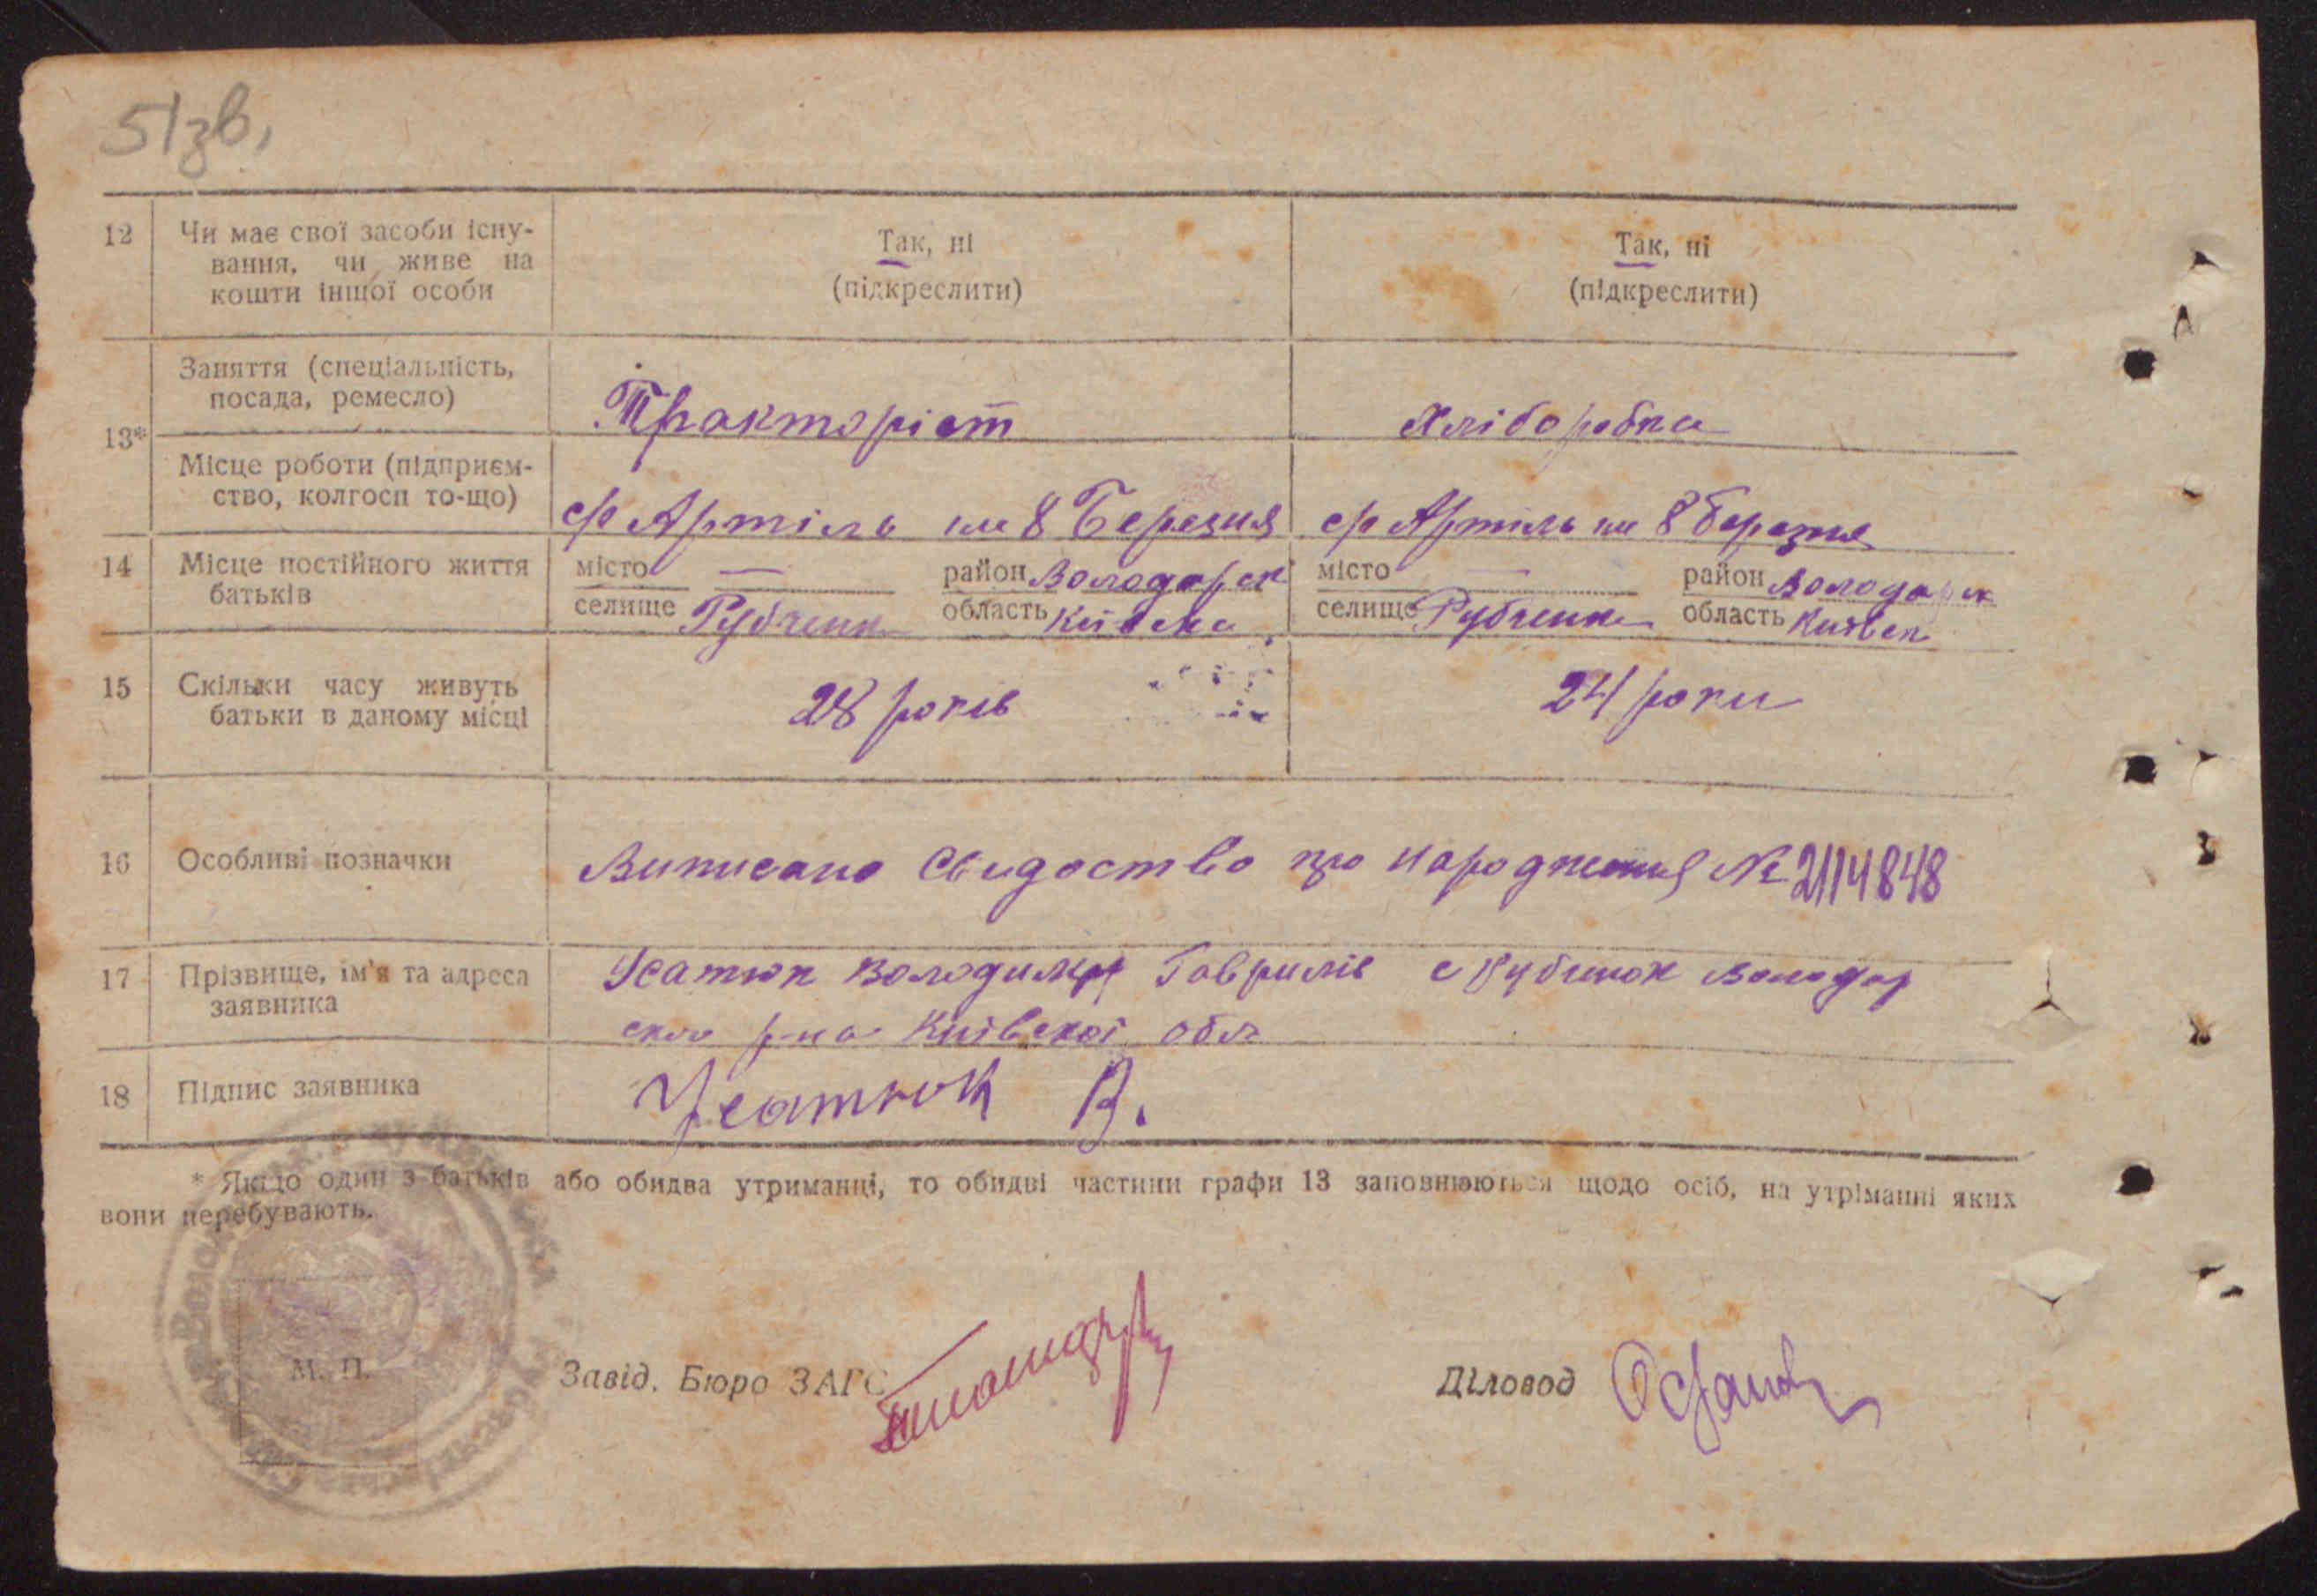 51зв,
12 Чи має свої засоби існу-
вання, чи живе на
кошти іншої особи
Так, ні
(підкреслити)
Так, ні
(підкреслити)
13*
Заняття (спеціальність,
посада, ремесло)
Тракторіст
Хліборобка
Місце роботи (підприєм-
ство, колгосп то-що)
с/г Артіль им 8 Березня
с/г Артіль им 8 березня
14 Місце постійного життя
батьків
місто — район Володарск
селище Рубченки область Київска
місто — район Володарск
селище Рубченки область Київск
15 Скільки часу живуть
батьки в даному місці
28 років
24 роки
16 Особливі позначки
Виписано Свидоство про народження № 2114848
17 Прізвище, ім'я та адреса
заявника
Усатюк Володимир Гаврилів с Рубченок Володар
ского р-на Київскої обл
18 Підпис заявника
Усатюк В.
* Якщо один з батьків або обидва утриманці, то обидві частини графи 13 заповнюються щодо осіб, на утріманні яких
вони перебувають.
М. П.
Завід. Бюро ЗАГС
Діловод